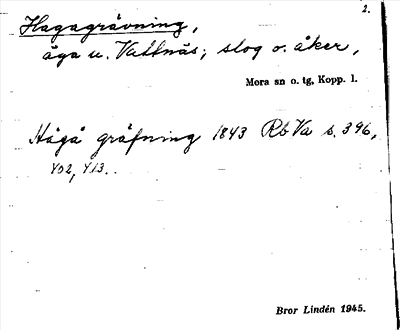 2.
Hagagrävning,
äga u. Vattnäs; slog o. åker,
Mora sn o. tg, Kopp. l.
Hågå gräfning 1843 Rb Va s. 396,
402, 413.
Bror Lindén 1945.